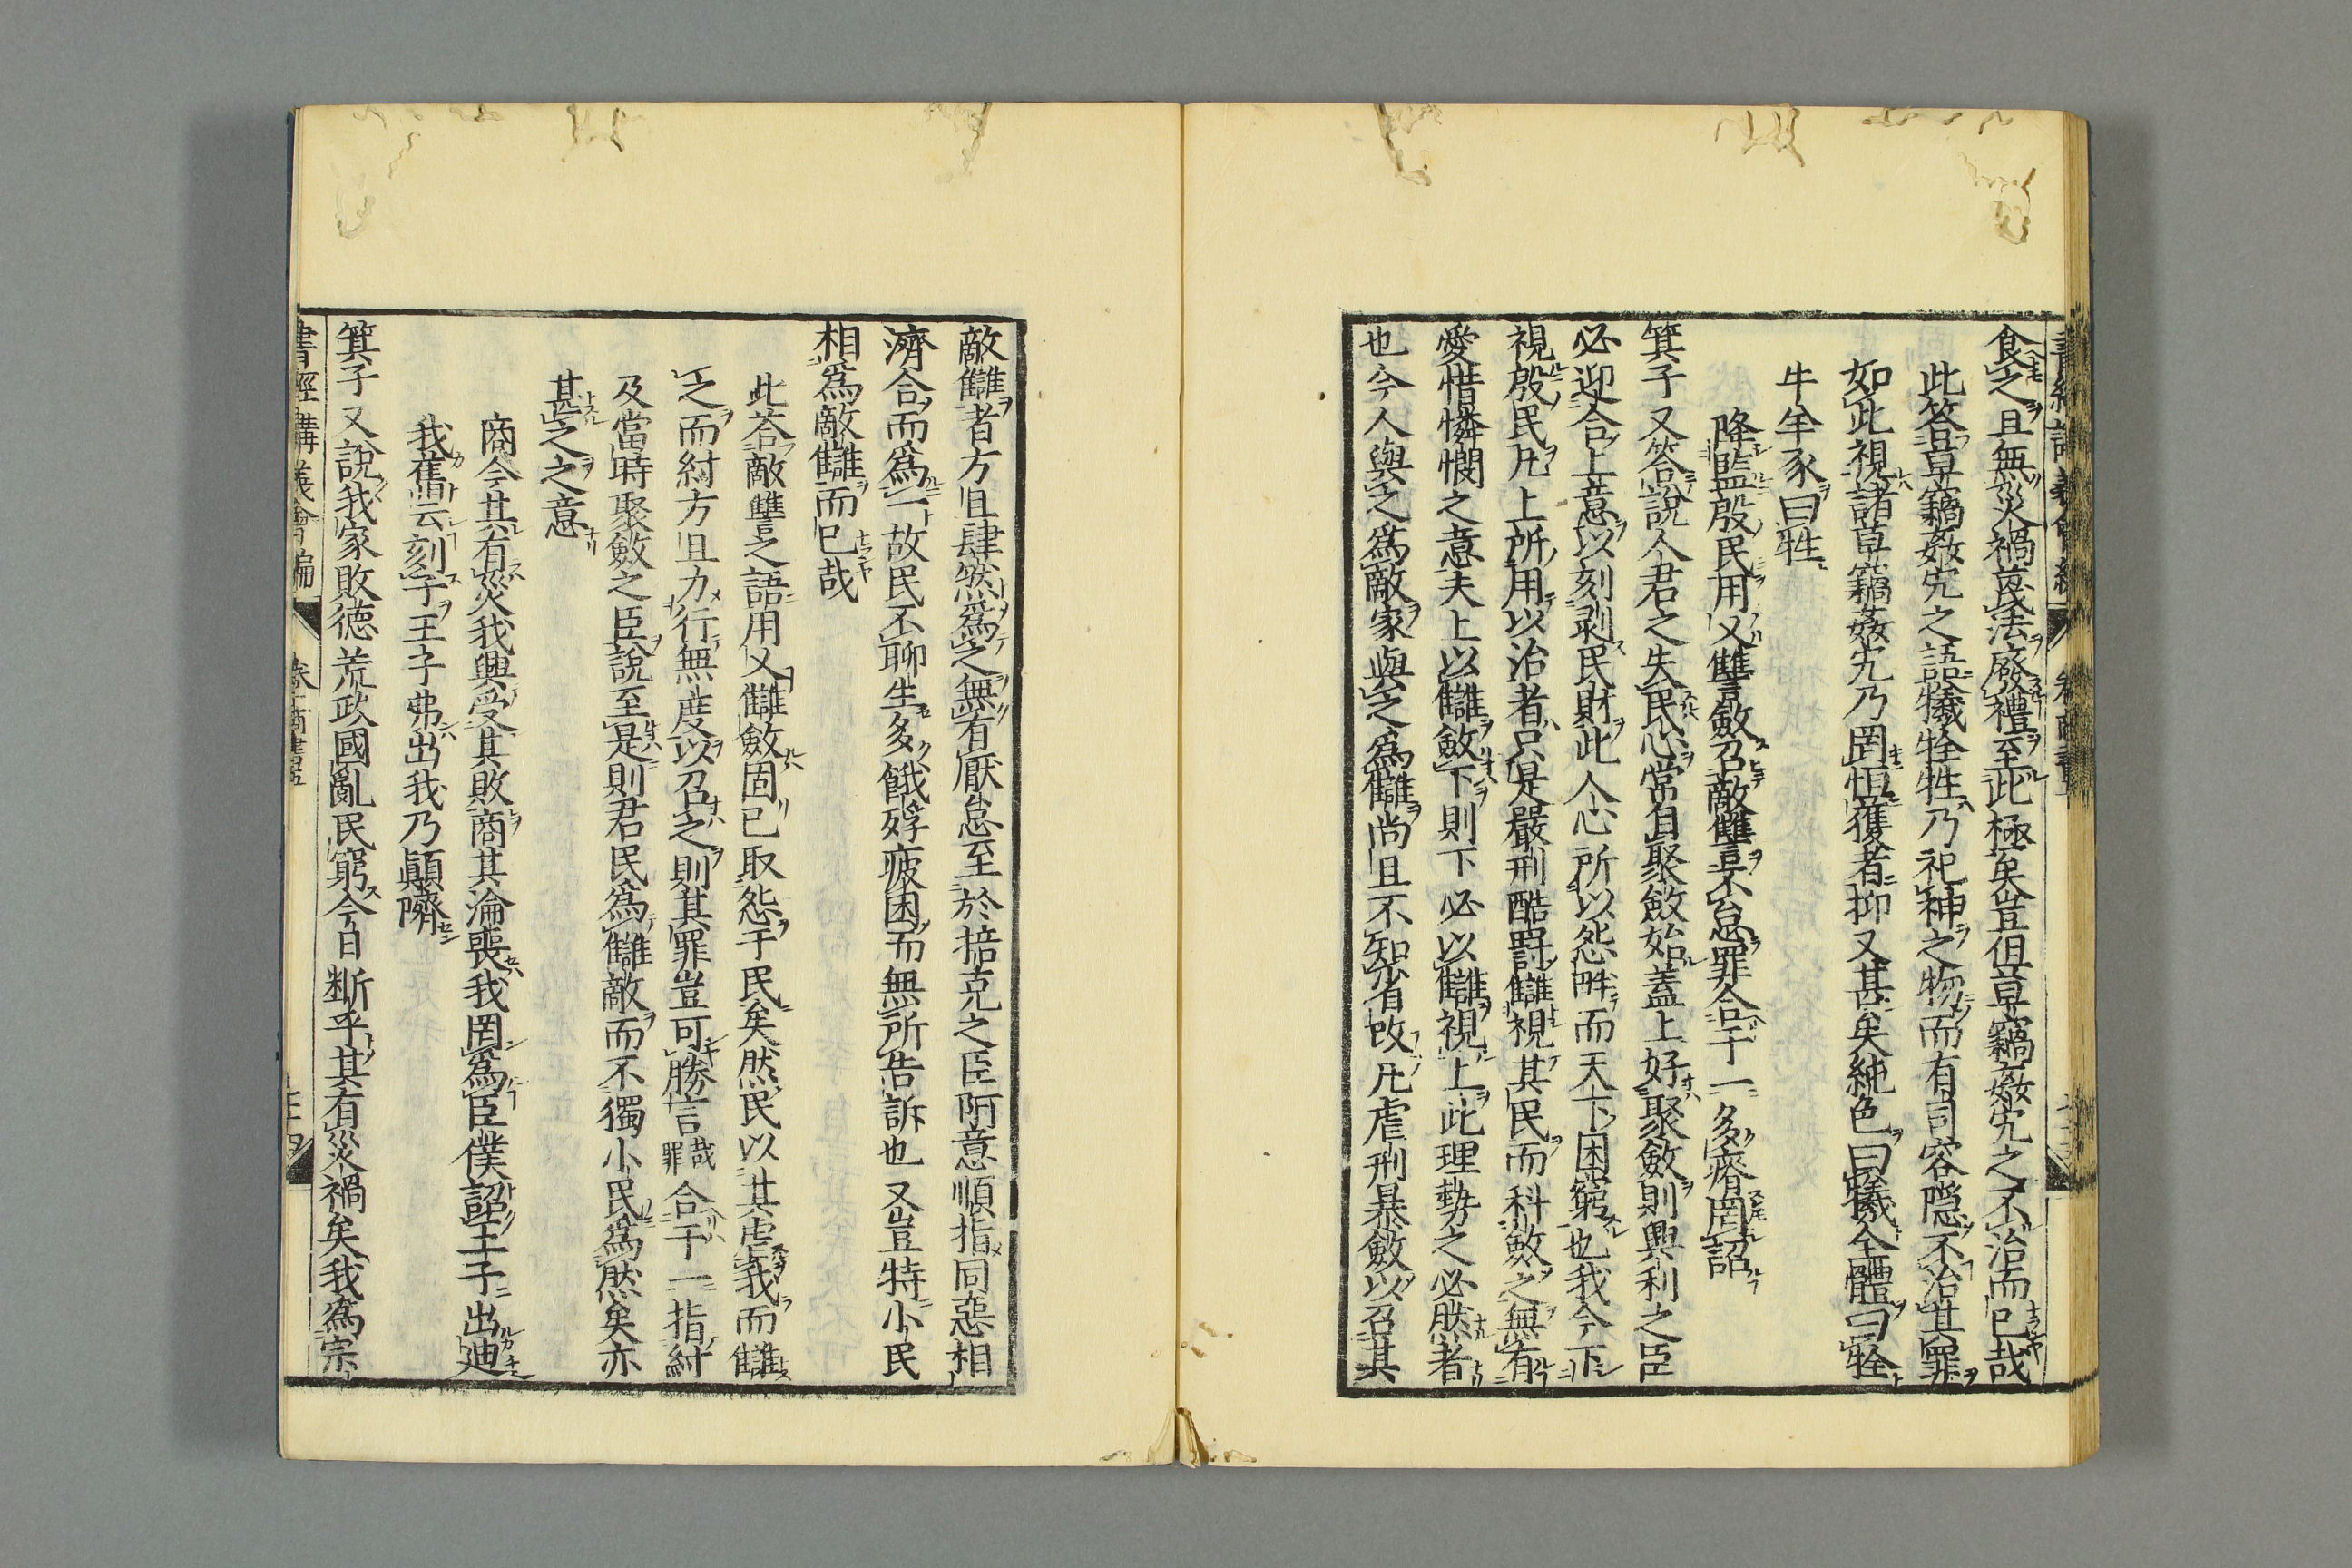 食之且無災禍蔑法廢禮至此極矣豈但草竊姦宄之不治而已哉
此答草竊姦宄之語犧牷牲乃祀神之物而有司容隱不治其罪
如此視諸草竊姦宄乃罔恒獲者抑又甚矣純色曰犧全體曰牷
牛羊豕曰牲
降監殷民用乂讐斂召敵讐不怠罪合于一多瘠罔詔
箕子又答說人君之失民心常自聚斂始蓋上好聚斂則興利之臣
必迎合上意以刻剥民財此人心所以怨畔而天下困窮也我今下
視殷民凡上所用以治者只是嚴刑酷罸讎視其民而科斂之無有
愛惜憐憫之意夫上以讎斂下則下必以讎視上此理勢之必然者
也今人與之為敵家與之為讎尚且不知省改凡虐刑暴斂以召其
敵讎者方且肆然為之無有厭怠至於掊克之臣阿意順指同惡相
濟合而為一故民不聊生多餓殍疲困而無所告訴也又豈特小民
相為敵讎而已哉
此荅敵讐之語用乂讎斂固已取怨于民矣然民以其虐我而讎
之而紂方且力行無度以召之則其罪豈可勝言哉罪合于一指紂
及當時聚斂之臣說至是則君民為讎敵而不獨小民為然矣亦
甚之之意
商今其有災我興受其敗商其淪喪我罔為臣僕詔王子出迪
我舊云刻子王子弗出我乃顚隮
箕子又說我家敗德荒政國亂民窮今日斷乎其有災禍矣我為宗
書經講義會編